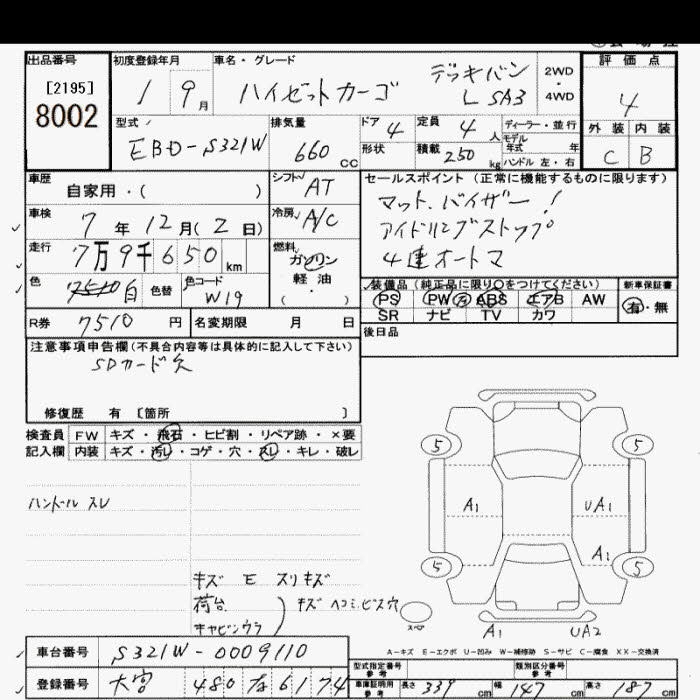 出品番号 初度登録年月 車名・グレード 評価点
[2195] 1 9月 ハイゼットカーゴ デッキバン 2WD・4WD
8002 L SA3 4
型式 排気量 ドア 4 定員 4人 ディーラー・並行 外装 内装
EBD-S321W 660cc 形状 積載 250kg モデル年式 年 C B
ハンドル 左・右
車歴 自家用・( ) シフト AT セールスポイント (正常に機能するものに限ります)
車検 7年12月(2日) 冷房 A/C マット.バイザー!
走行 7万9千650km 燃料 ガソリン・軽油 ( ) アイドリングストップ
4速オートマ
色 7510 白 色替 色コード W19 装備品 (純正品に限り○をつけてください) 新車保証書
PS PW ABS エアB AW 有・無
R券 7510円 名変期限 月 日 SR ナビ TV カワ
注意事項申告欄(不具合内容等は具体的に記入して下さい) 後日品
SDカード欠
修復歴 有 [箇所 ]
検査員 FW キズ・飛石・ヒビ割・リペア跡・×要
記入欄 内装 キズ・汚レ・コゲ・穴・スレ・キレ・破レ
5 5
ハンドル スレ A1 UA1
A1
5 5
キズ E スリキズ
荷台 キズ ヘコミ ビス穴
キャビンウラ スペア A1 UA2
A-キズ E-エクボ U-凹み W-補修跡 S-サビ C-腐食 XX-交換済
車台番号 S321W-0009110
型式指定番号 参考 類別区分番号 参考
登録番号 大宮 480 な 6174 車庫証明用 参考 長さ 339cm 幅 147cm 高さ 187cm